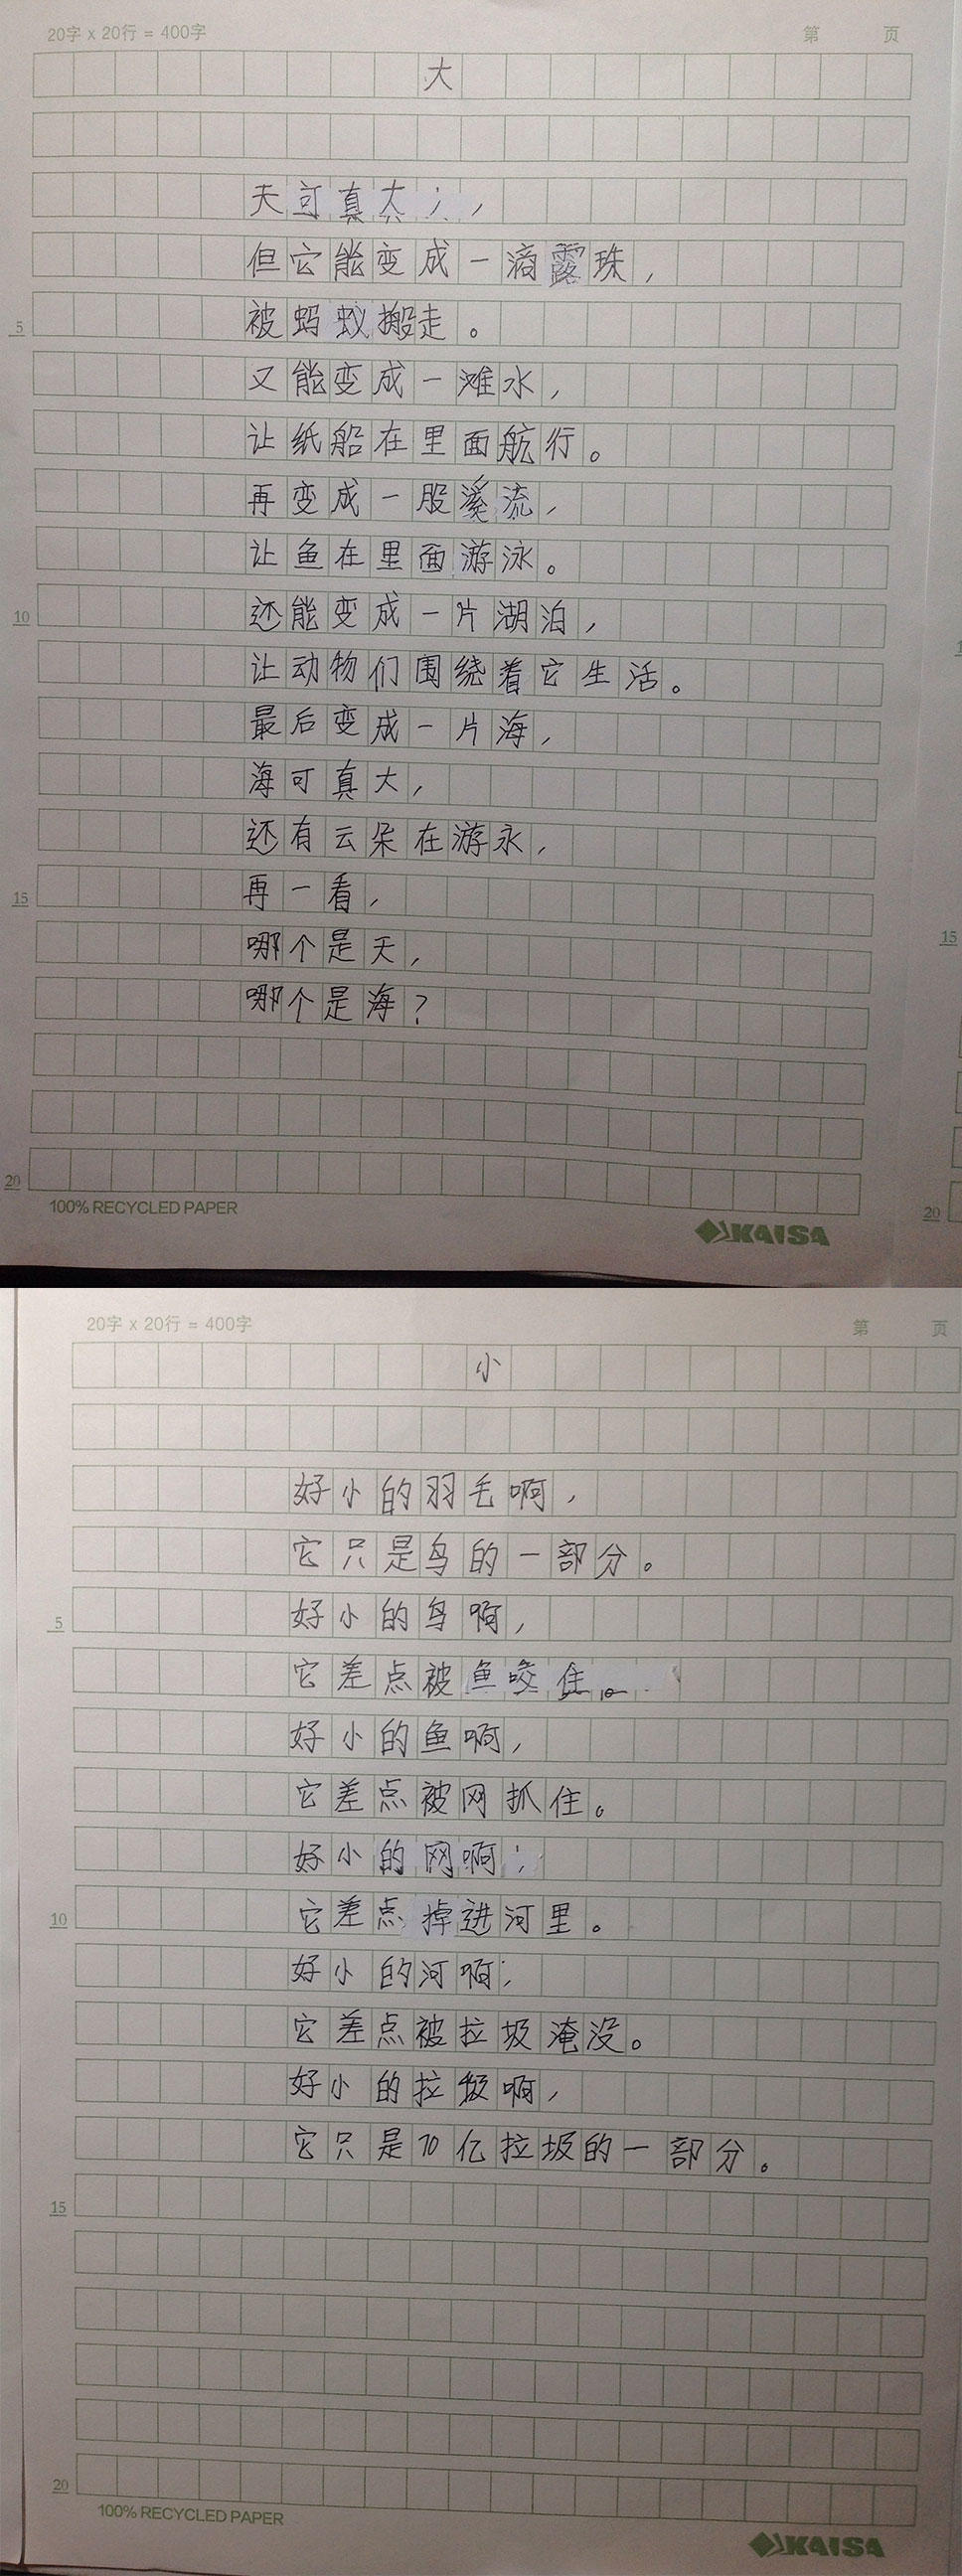 20字 x 20行 = 400字 第 页
大
天可真大，
但它能变成一滴露珠，
5 被蚂蚁搬走。
又能变成一滩水，
让纸船在里面航行。
再变成一股溪流，
让鱼在里面游泳。
10 还能变成一片湖泊，
让动物们围绕着它生活。
最后变成一片海，
海可真大，
还有云朵在游永，
15 再一看，
哪个是天，
15
哪个是海？
20
100% RECYCLED PAPER
KAISA
20
20字 x 20行 = 400字 第 页
小
好小的羽毛啊，
它只是鸟的一部分。
5 好小的鸟啊，
它差点被鱼咬住。
好小的鱼啊，
它差点被网抓住。
好小的网啊，
10 它差点掉进河里。
好小的河啊，
它差点被垃圾淹没。
好小的垃圾啊，
它只是70亿垃圾的一部分。
15
20
100% RECYCLED PAPER
KAISA